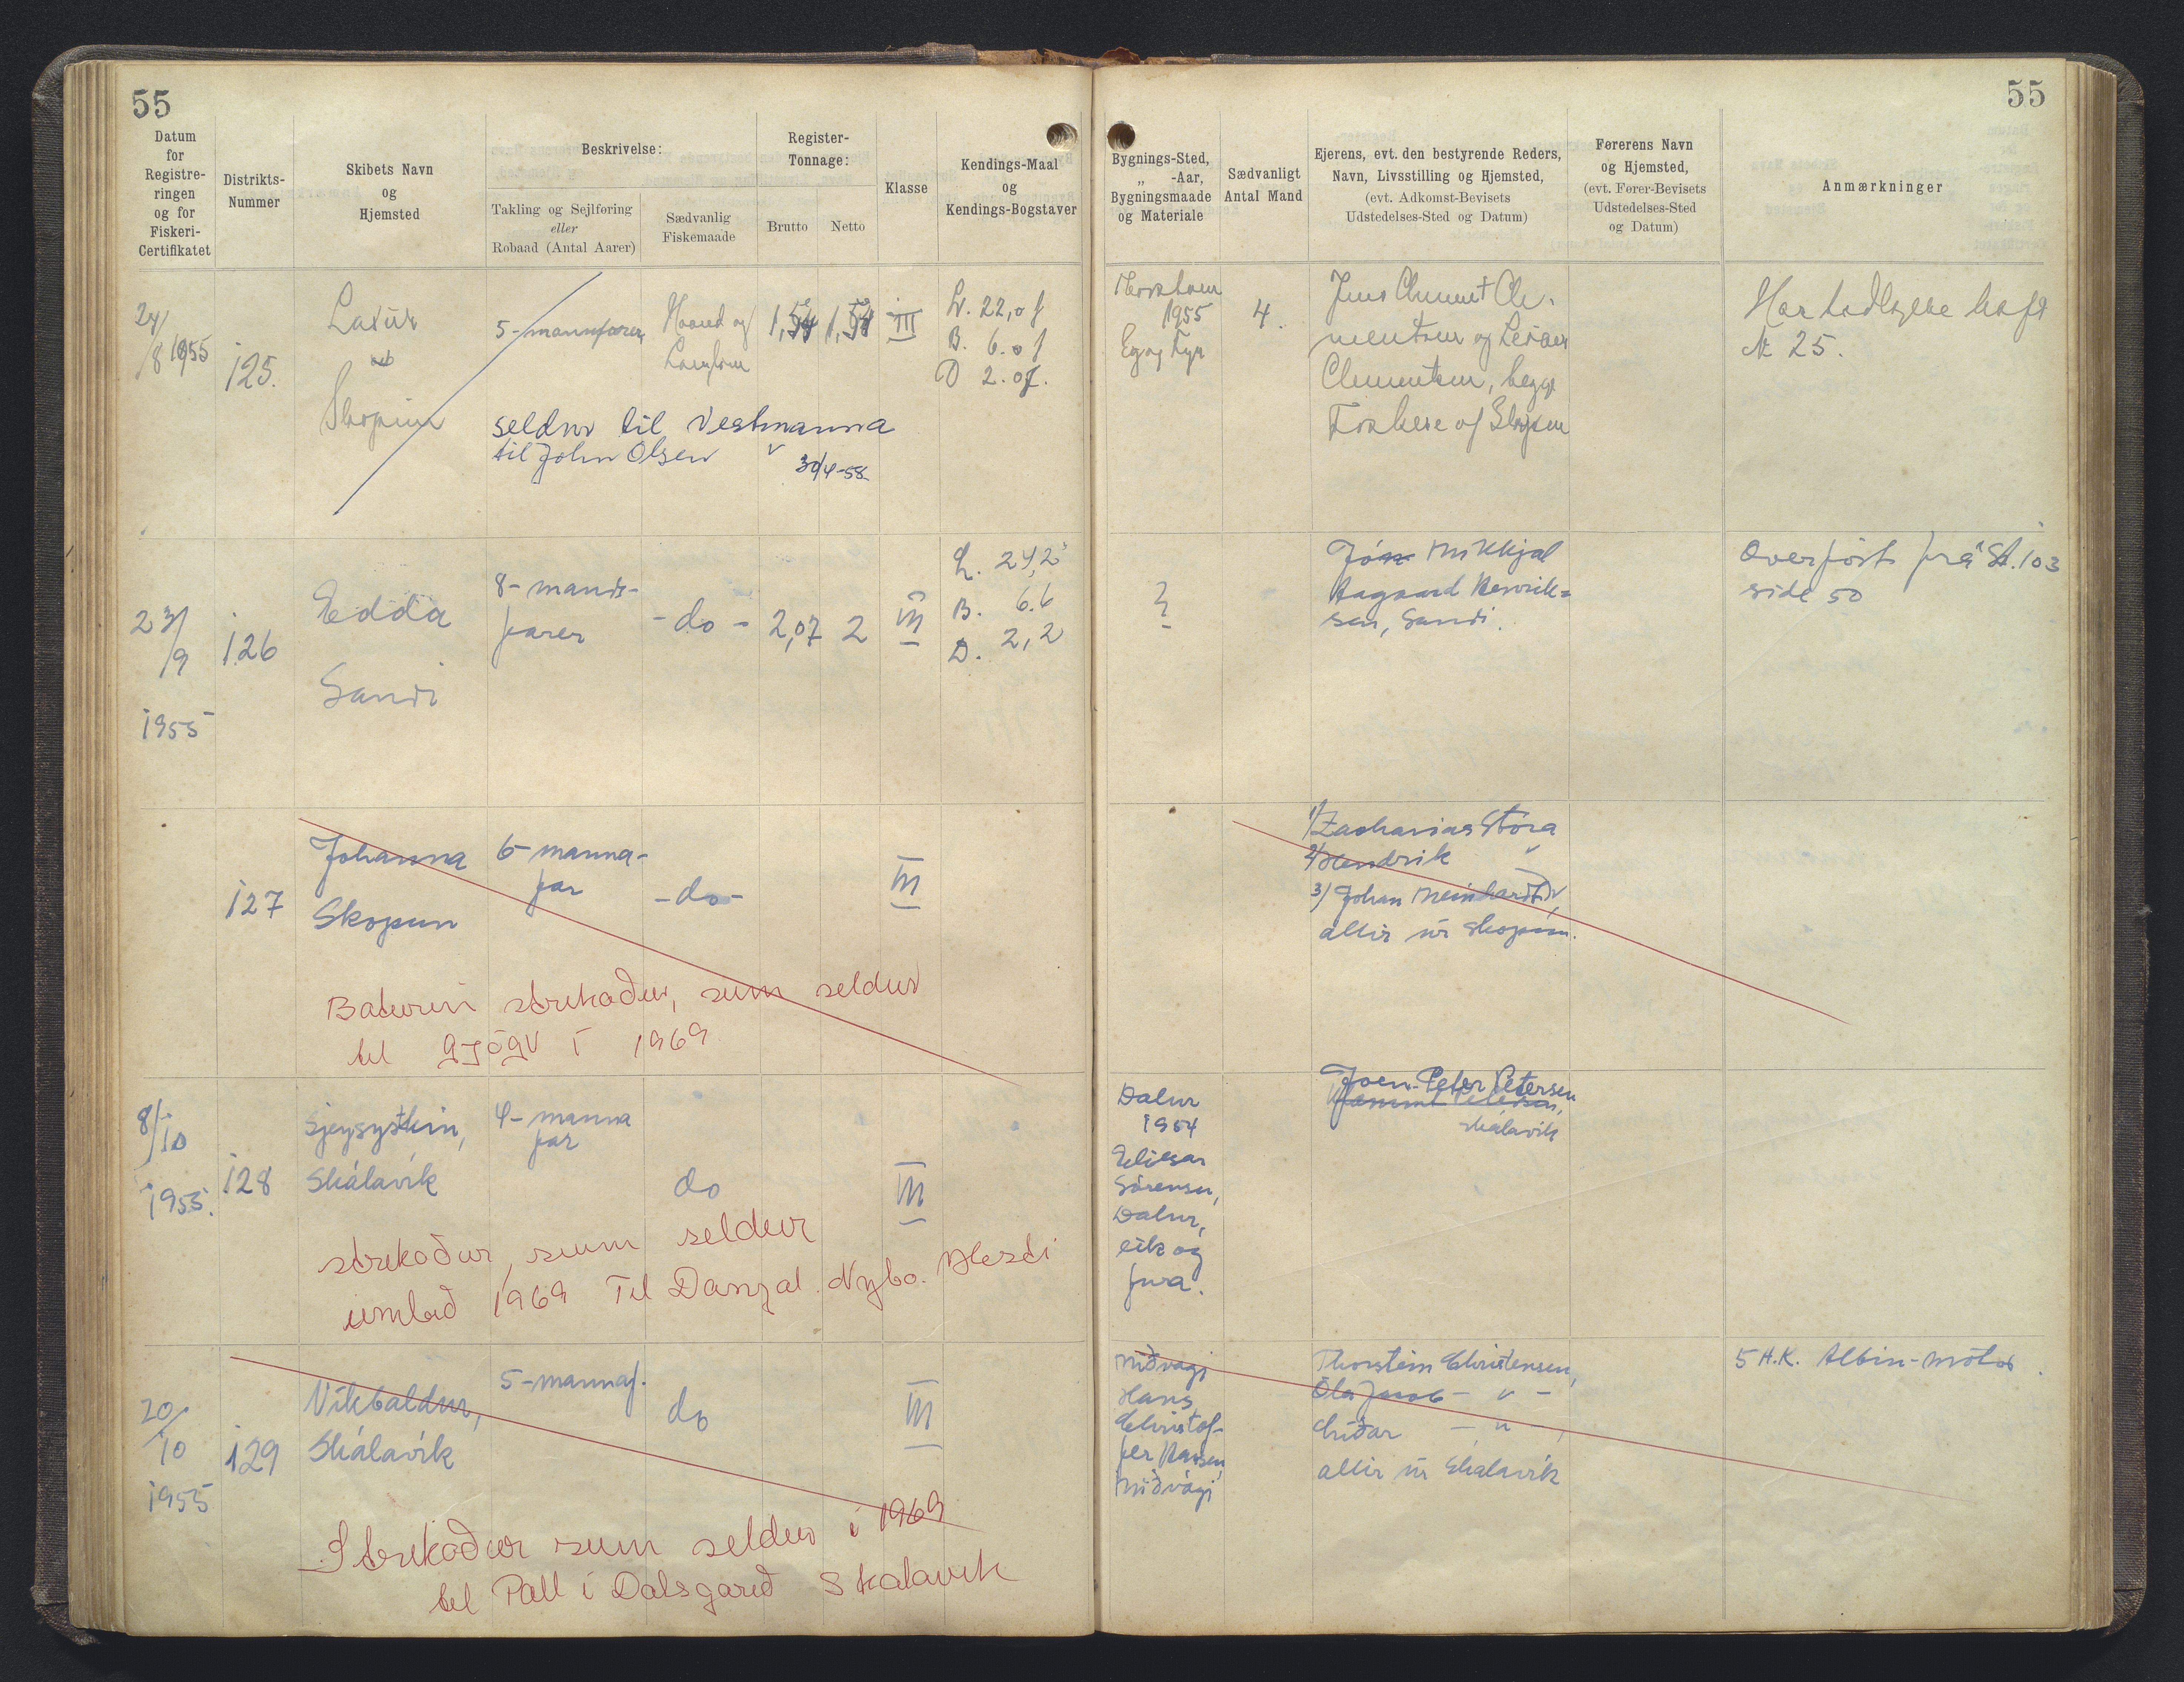 55
55
Datum
for
Registre-
ringen
og for
Fiskeri-
Certifikatet
Distrikts-
Nummer
Skibets Navn
og
Hjemsted
Beskrivelse:
Takling og Sejlføring
eller
Robaad (Antal Aarer)
Sædvanlig
Fiskemaade
Register-
Tonnage:
Brutto
Netto
Klasse
Kendings-Maal
og
Kendings-Bogstaver
Bygnings-Sted,
„ -Aar,
Bygningsmaade
og Materiale
Sædvanligt
Antal Mand
Ejerens, evt. den bestyrende Reders,
Navn, Livsstilling og Hjemsted,
(evt. Adkomst-Bevisets
Udstedelses-Sted og Datum)
Førerens Navn
og Hjemsted,
(evt. Fører-Bevisets
Udstedelses-Sted
og Datum)
Anmærkninger
24/
/8 1955
125.
Skopun
5-mannfarer
Haand og
III
L. 22,0 f
B. 6.0 f
D 2.0 f.
seldur til Vestmanna
til John Olsen
30/4-58
Thorshavn
1955
Eg og Fyr
4.
Jens Clement Cle-
mentsen og
Clementsen, begge
Fiskere af Skopun
Har tidligere haft
№ 25.
23/
/9
1955
126
Edda
Sandi
8-mands-
farer
-do-
2,07
2
III
L. 24,2
B. 6.6
D. 2,2
?
Mikkjal
Aagaard Henrik=
sen, Sandi.
Overført frá St. 103
side 50
127
Johanna
Skopun
6-manna-
far
-do-
III
Baturin strikaður, sum seldur
til GJÓGV Í 1969
1/ Zacharias Stóra
2/ Hendrik
3/ Johan Meinhardt
allir úr Skopun.
8/
10
1955.
128
Sjeysystkin,
Skálavík
4-manna
far
do
III
strikaður, sum seldur
1969 Til Danjal. Nybo. Hesti
Dalur
1954
Eliesar
Sörensen,
Dalur,
eik og
fura.
Joen-Peter Petersen
Skálavík
20/
10
1955
129
Víkbaldur,
Skálavík
5-mannaf.
do
III
Strikaður sum seldur í 1969
til Pall í Dalsgarð Skalavik
Miðvági
Hans
Christof-
fer Hansen
Miðvági
Thorstein Christensen,
Óla Jacob - " -
- " -,
allir úr Skálavík
5 H.K. Albin-mótor.